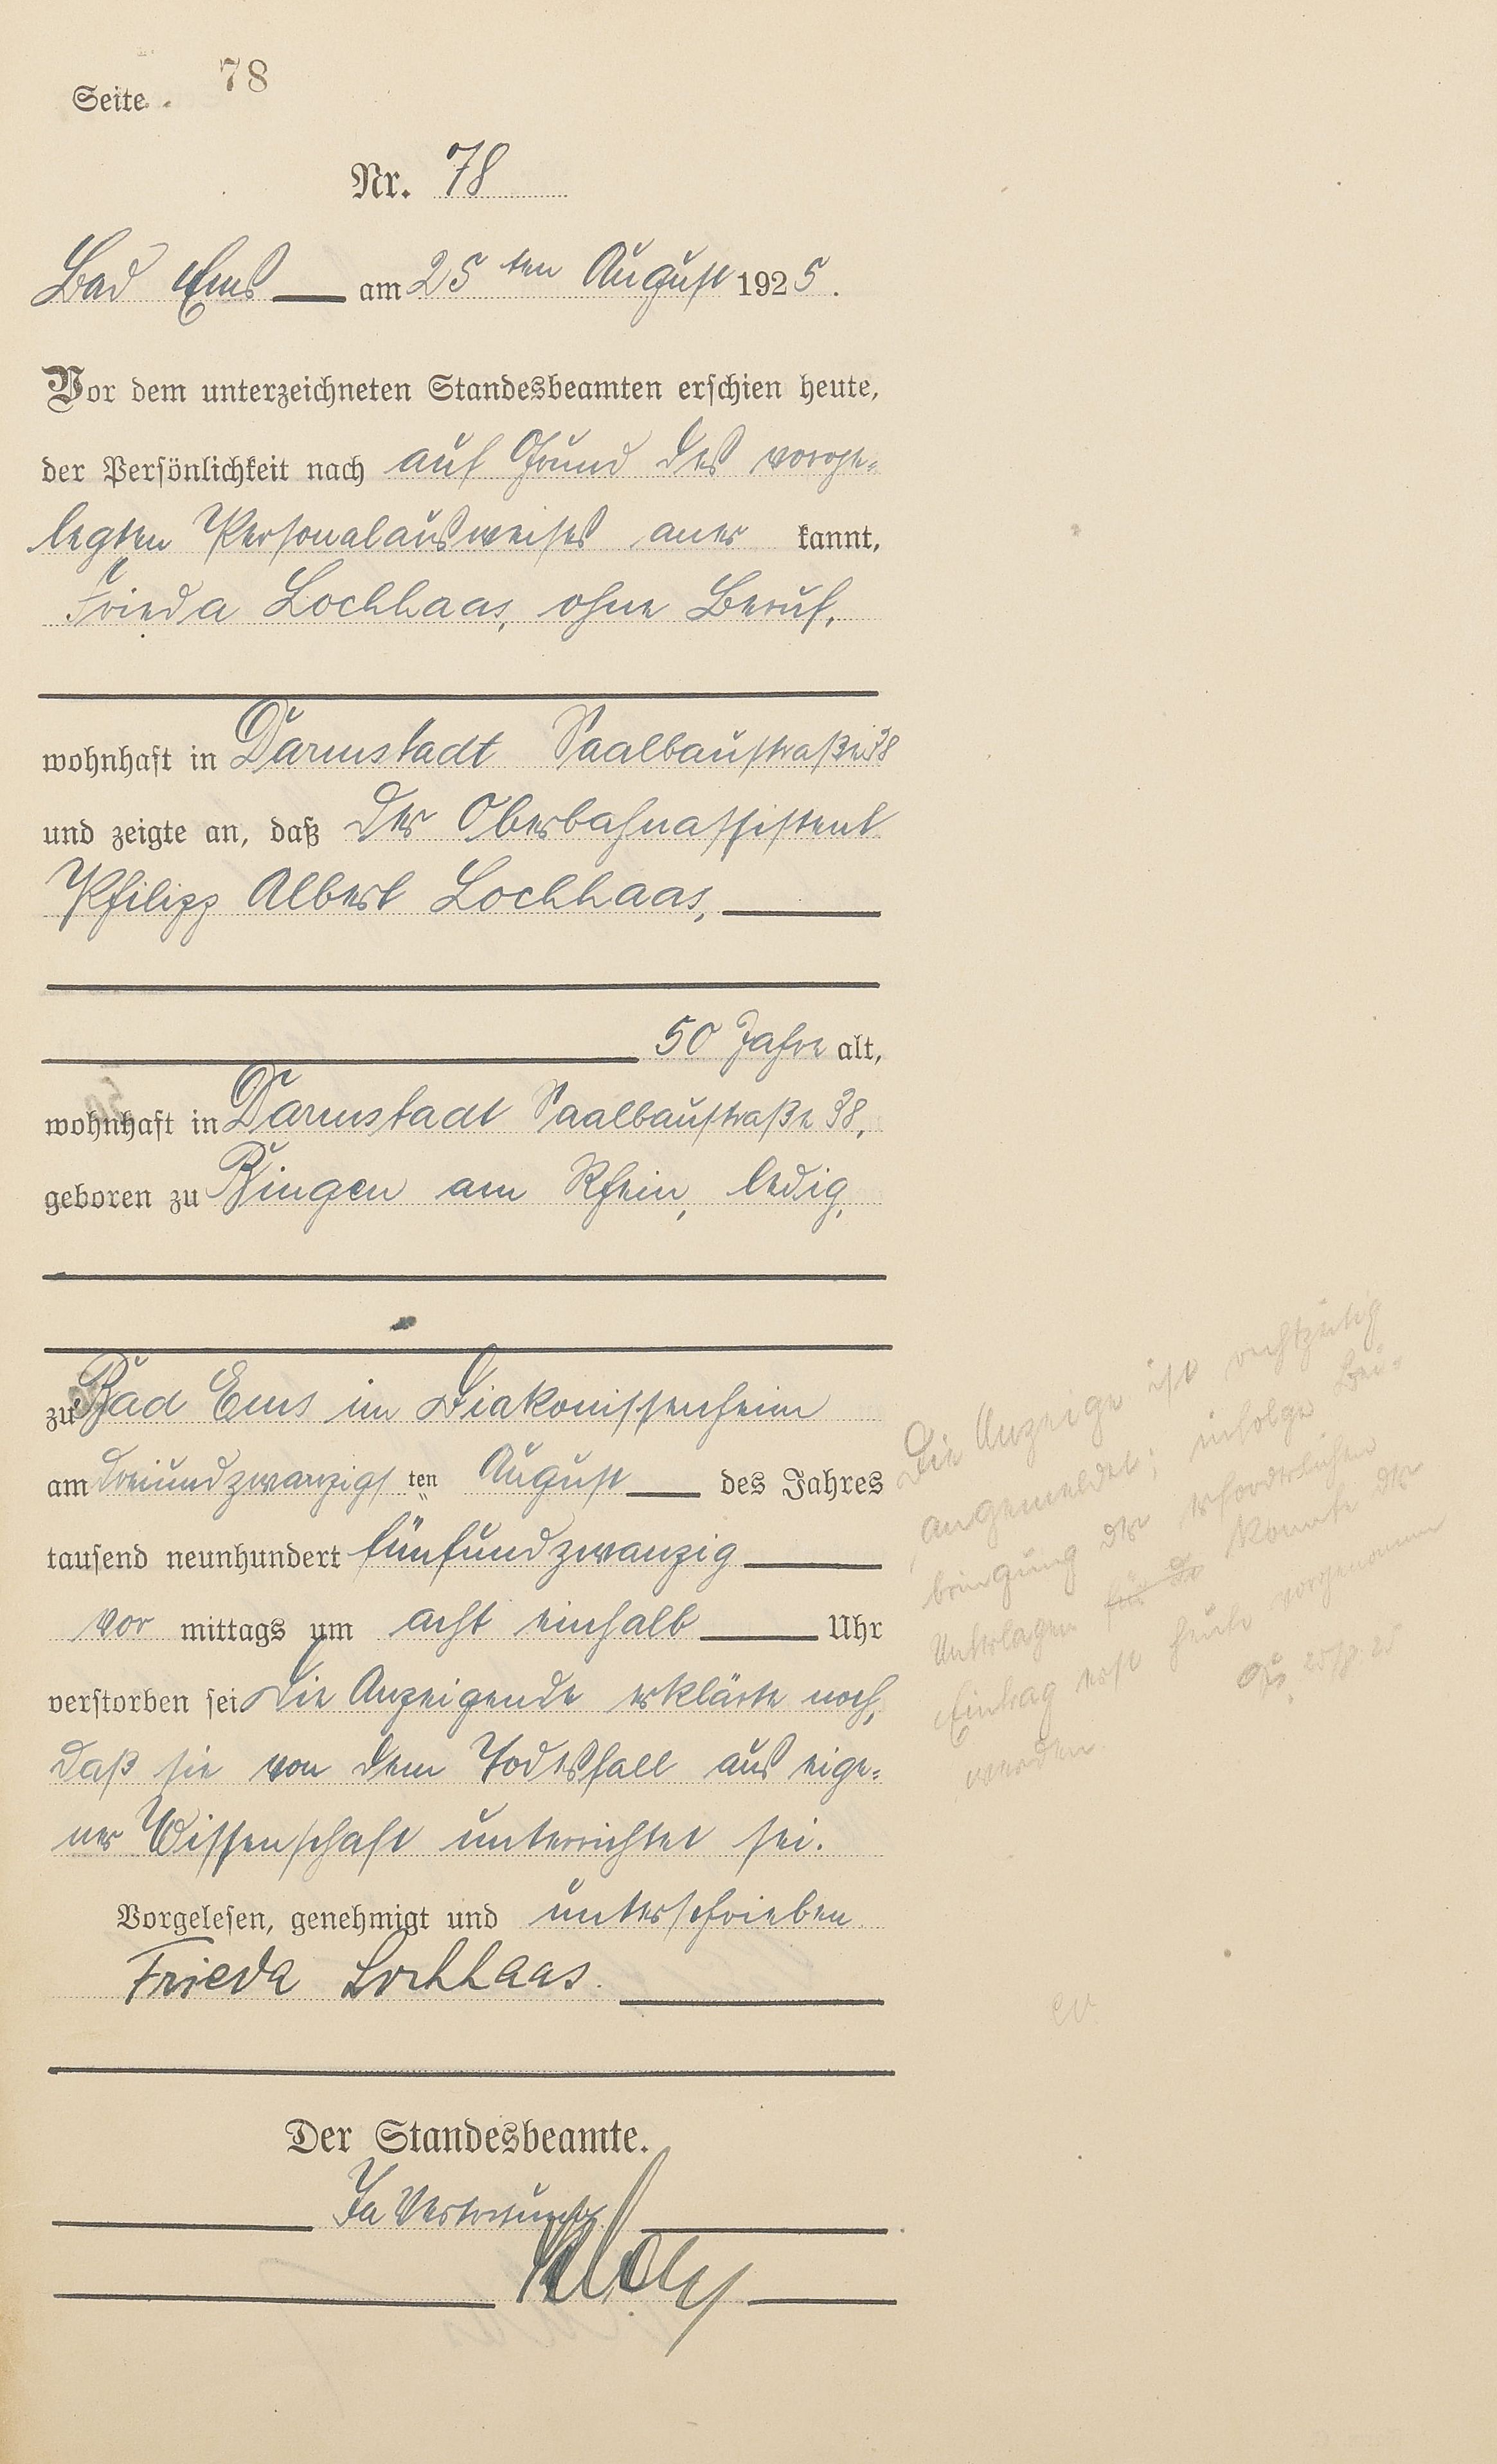 Seite 78
Nr. 78
Bad Ems am 25 ten August 1925.
Vor dem unterzeichneten Standesbeamten erschien heute,
der Persönlichkeit nach auf Grund des vorge-
legten Personalausweises aner kannt,
Frieda Lochhaas, ohne Beruf,
wohnhaft in Darmstadt Saalbaustraße 38
und zeigte an, daß der Oberbahnassistent
Philipp Albert Lochhaas,
50 Jahre alt,
wohnhaft in Darmstadt Saalbaustraße 38,
geboren zu Bingen am Rhein, ledig,
zu Bad Ems im Diakonissenheim
am dreiundzwanzigs ten August des Jahres
tausend neunhundert fünfundzwanzig
vor mittags um acht einhalb Uhr
verstorben sei. Die Anzeigende erklärte noch,
daß sie von dem Todesfall aus eige-
ner Wissenschaft unterrichtet sei.
Vorgelesen, genehmigt und unterschrieben
Frieda Lochhaas.
Der Standesbeamte.
In Vertretung
Die Anzeige ist rechtzeitig
angemeldet; infolge Bei-
bringung der erforderlichen
Unterlagen für die konnte der
Eintrag erst heute vorgenommen
werden.
25/8.25